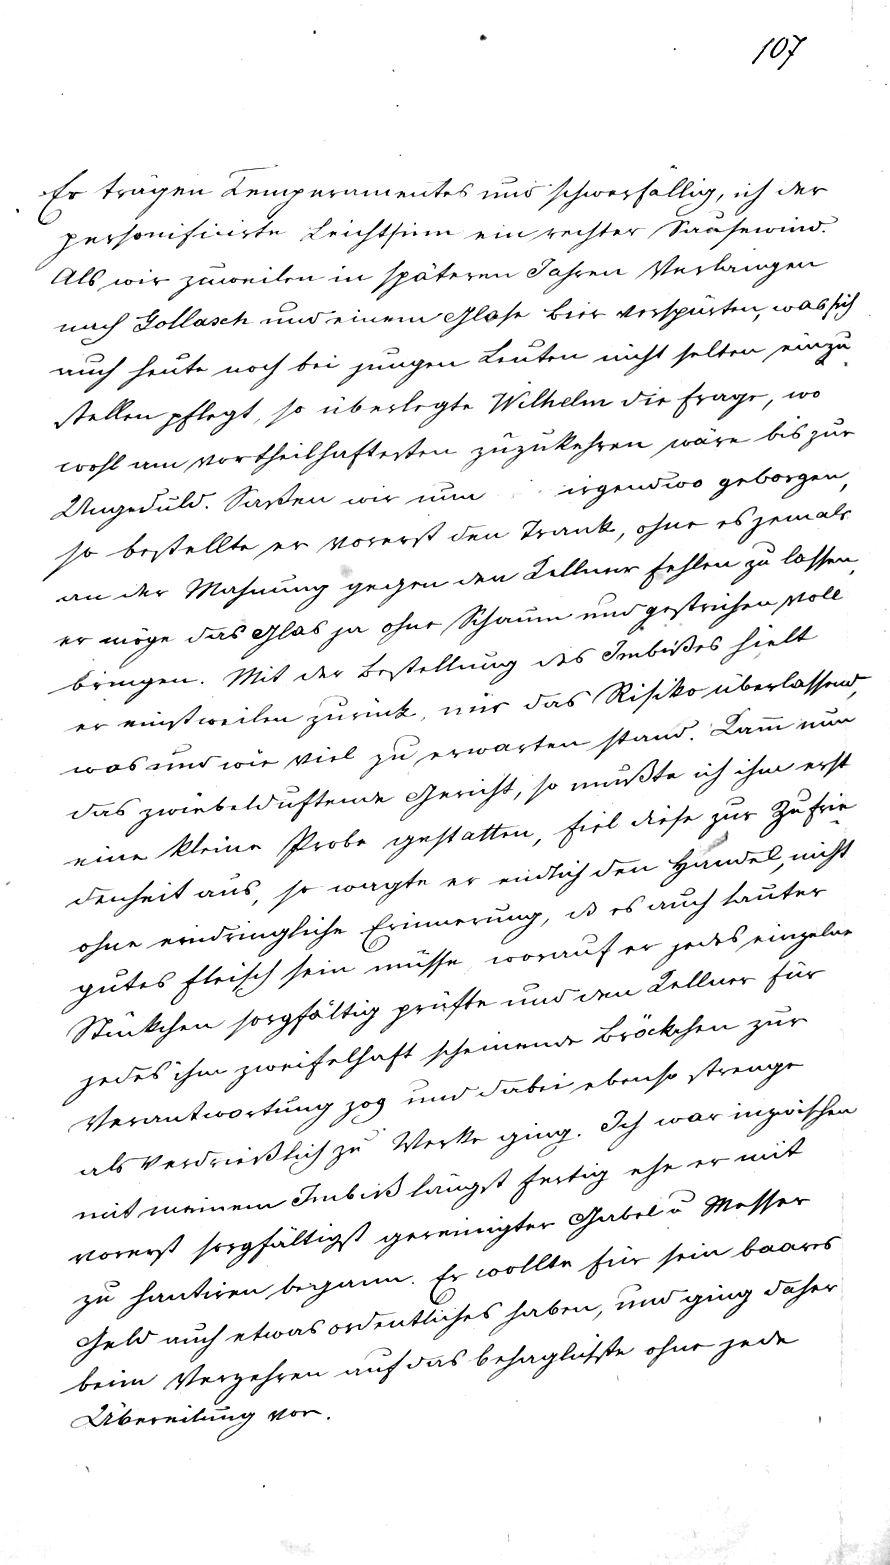 107
Er trägen Temperamentes und schwerfällig, ich der
personificirte Leichtsinn ein rechter Sausewind.
Als wir zuweilen in späteren Jahren Verlangen
nach Gollasch und einem Glase Bier verspürten, was sich
auch heute noch bei jungen Leuten nicht selten einzu
stellen pflegt, so überlegte Wilhelm die Frage, wo
wohl am vortheilhaftesten zuzukehren wäre bis zur
Ungeduld. Saßen wir nun irgendwo geborgen,
so bestellte er vorerst den Trank, ohne es jemals
an der Mahnung gegen den Kellner fehlen zu lassen,
er möge das Glas ja ohne Schaum und gestrichen voll
bringen. Mit der Bestellung des Imbißes hielt
er einstweilen zurück, mir das Risiko überlassend,
was und wie viel zu erwarten stand. Kam̅ nun
das zwiebelduftende Gericht, so mußte ich ihm erst
eine kleine Probe gestatten, fiel diese zur Zufrie
denheit aus, so wagte er endlich den Handel, nicht
ohne eindringliche Erinnerung, daß es auch lauter
gutes Fleisch sein müsse, worauf er jedes einzelne
Stückchen sorgfältig prüfte und den Kellner für
jedes ihm zweifelhaft scheinende Bröckchen zur
Verantwortung zog und dabei ebenso strenge
als verdrießlich zu Werke ging. Ich war inzwischen
mit meinem Imbiß längst fertig ehe er mit
vorerst sorgfältigst gereinigter Gabel u Messer
zu hantiren begann. Er wollte für sein baares
Geld auch etwas ordentliches haben, und ging daher
beim Verzehren auf das behaglichste ohne jede
Übereilung vor.